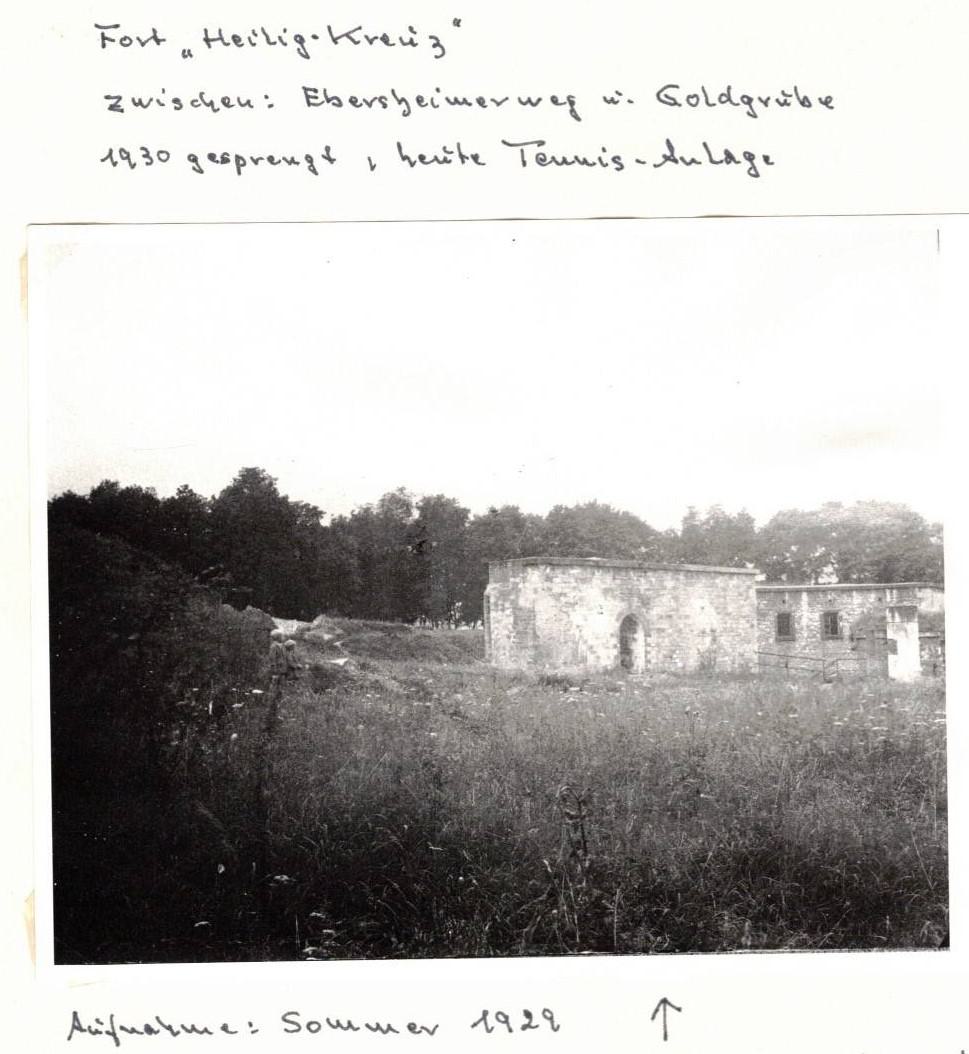 Fort „Heilig-Kreuz“
zwischen: Ebersheimerweg u. Goldgrube
1930 gesprengt, heute Tennis-Anlage
Aufnahme: Sommer 1929 ↑